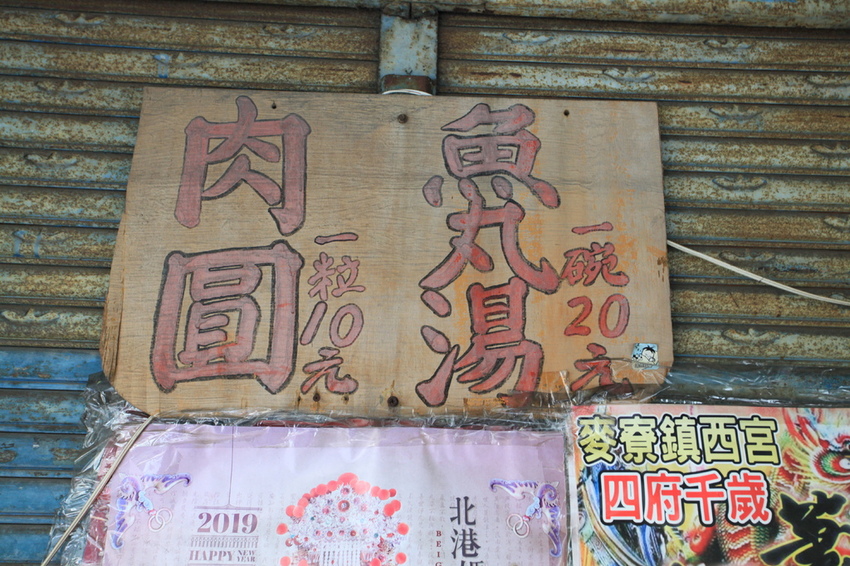 肉圓
一粒10元
魚丸湯
一碗20元
2019
HAPPY NEW YEAR
北港
麥寮鎮西宮
四府千歲